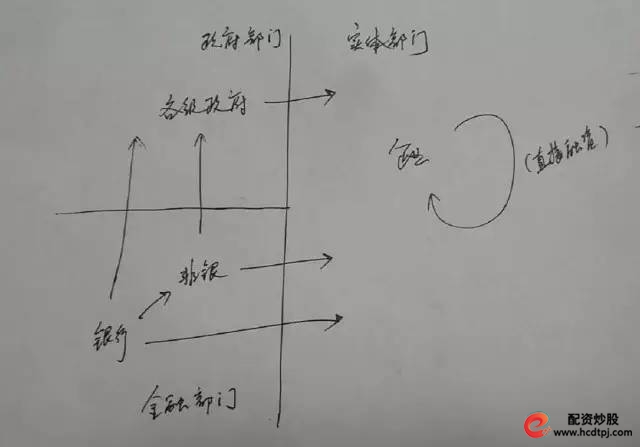 政府部门 实体部门
各级政府
企业
(直接融资)
非银
银行
金融部门
配资炒股
www.hcdtpj.com